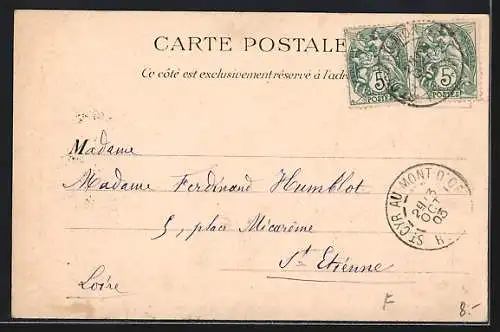 CARTE POSTALE
Ce côté est exclusivement réservé à l'adr
5
POSTES
5
POSTES
Madame
Madame Ferdinand Humblot
5, place Micarême
St Etienne
Loire
ST CYR AU MONT D'O
3
29
OCT
03
F
8.-